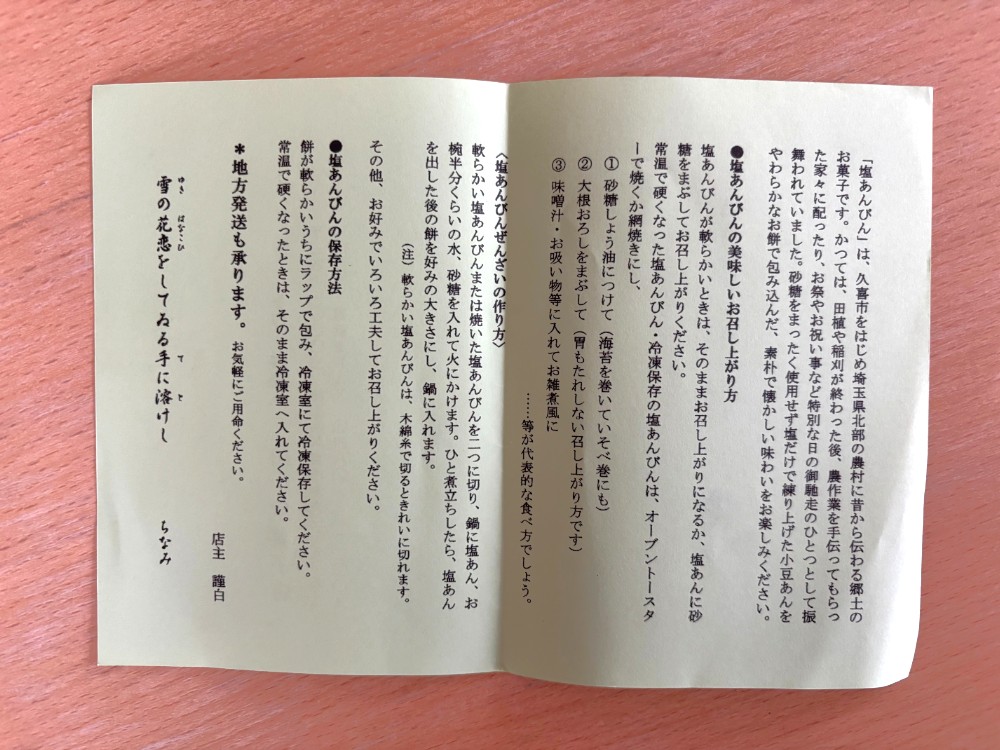 「塩あんびん」は、久喜市をはじめ埼玉県北部の農村に昔から伝わる郷土の
お菓子です。かつては、田植や稲刈が終わった後、農作業を手伝ってもらっ
た家々に配ったり、お祭やお祝い事など特別な日の御馳走のひとつとして振
舞われていました。砂糖をまったく使用せず塩だけで練り上げた小豆あんを
やわらかなお餅で包み込んだ、素朴で懐かしい味わいをお楽しみください。
●塩あんびんの美味しいお召し上がり方
塩あんびんが軟らかいときは、そのままお召し上がりになるか、塩あんに砂
糖をまぶしてお召し上がりください。
常温で硬くなった塩あんびん・冷凍保存の塩あんびんは、オーブントースタ
ーで焼くか網焼きにし、
① 砂糖しょう油につけて（海苔を巻いていそべ巻にも）
② 大根おろしをまぶして（胃もたれしない召し上がり方です）
③ 味噌汁・お吸い物等に入れてお雑煮風に
……等が代表的な食べ方でしょう。
〈塩あんびんぜんざいの作り方〉
軟らかい塩あんびんまたは焼いた塩あんびんを二つに切り、鍋に塩あん、お
椀半分くらいの水、砂糖を入れて火にかけます。ひと煮立ちしたら、塩あん
を出した後の餅を好みの大きさにし、鍋に入れます。
（注）軟らかい塩あんびんは、木綿糸で切るときれいに切れます。
その他、お好みでいろいろ工夫してお召し上がりください。
●塩あんびんの保存方法
餅が軟らかいうちにラップで包み、冷凍室にて冷凍保存してください。
常温で硬くなったときは、そのまま冷凍室へ入れてください。
＊地方発送も承ります。お気軽にご用命ください。
店主 謹白
雪の花恋をしてゐる手に溶けし ちなみ
ゆき はなこひ て と